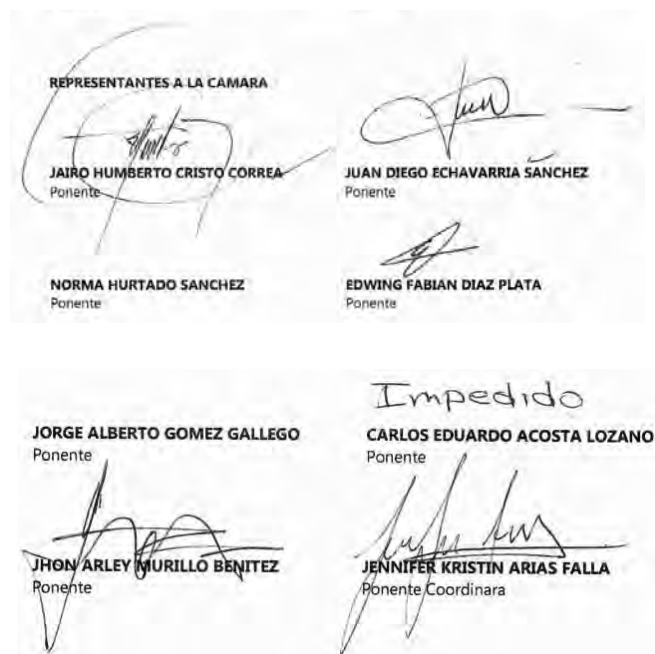 REPRESENTANTES A LA CAMARA
JAIRO HUMBERTO CRISTO CORREA
Ponente
JUAN DIEGO ECHAVARRIA SANCHEZ
Ponente
NORMA HURTADO SANCHEZ
Ponente
EDWING FABIAN DIAZ PLATA
Ponente
JORGE ALBERTO GOMEZ GALLEGO
Ponente
Impedido
CARLOS EDUARDO ACOSTA LOZANO
Ponente
JHON ARLEY MURILLO BENITEZ
Ponente
JENNIFER KRISTIN ARIAS FALLA
Ponente Coordinara